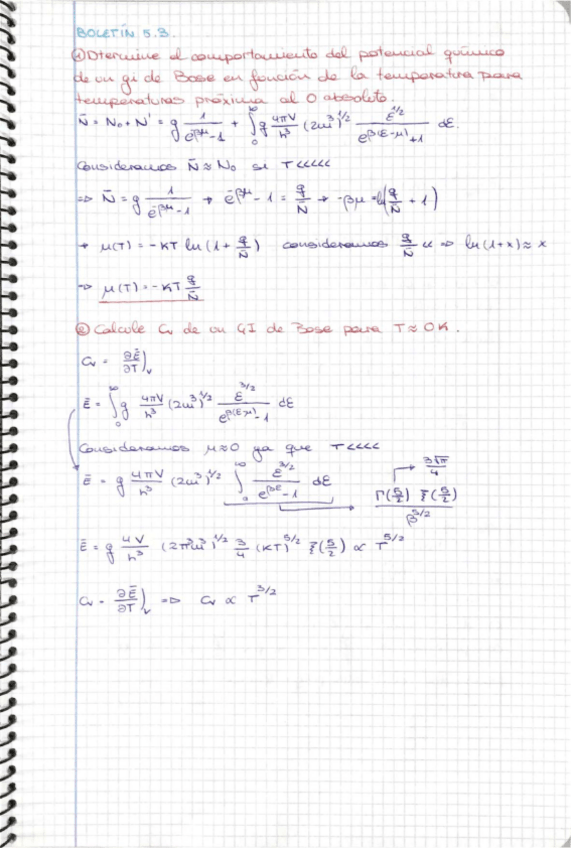 BOLETÍN 5.3.
① Dtermine el comportamiento del potencial químico
de un gi de Bose en función de la temperatura para
temperaturas próxima al 0 absoluto.
N̄ = N₀ + N' = g 1/(e^(-βμ) - 1) + ∫₀^∞ g 4πV/h³ (2m³)^(1/2) ε^(1/2)/(e^(β(ε-μ)) + 1) dε.
Consideramos N̄ ≈ N₀ si T <<<<<
⇒ N̄ = g 1/(e^(-βμ) - 1) → e^(-βμ) - 1 = g/N̄ → -βμ = ln(g/N̄ + 1)
→ μ(T) = -KT ln(1 + g/N̄) consideramos g/N̄ << ⇒ ln(1+x) ≈ x
⇒ μ(T) = -KT g/N̄
② Calcule Cv de un GI de Bose para T ≈ 0K.
Cv = ∂Ē/∂T)v
Ē = ∫₀^∞ g 4πV/h³ (2m³)^(1/2) ε^(3/2)/(e^(β(ε-μ)) - 1) dε
Consideramos μ≈0 ya que T <<<<
Ē = g 4πV/h³ (2m³)^(1/2) ∫₀^∞ ε^(3/2)/(e^(βε) - 1) dε → Γ(5/2) ζ(5/2)/β^(5/2) → 3√π/4
Ē = g 4V/h³ (2π³m³)^(1/2) 3/4 (KT)^(5/2) ζ(5/2) ∝ T^(5/2)
Cv = ∂Ē/∂T)v ⇒ Cv ∝ T^(3/2)